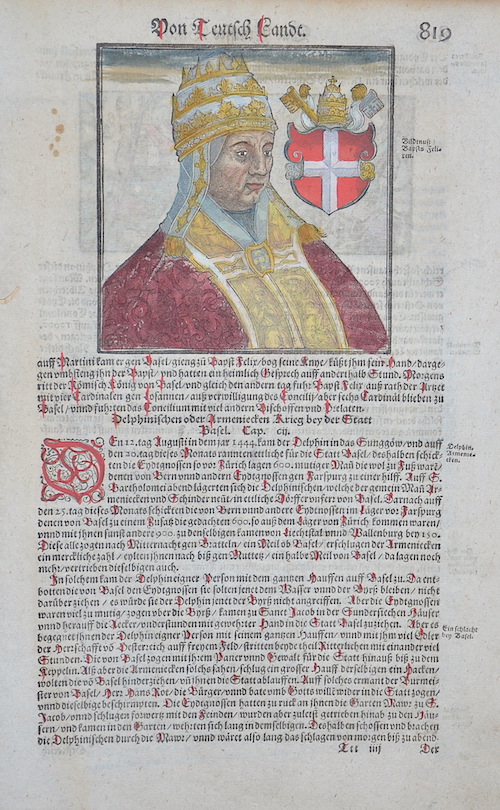 Von Teutsch Landt.
819
Bildtnuß
Bapsts Feli-
ren.
auff Martini kam er gen Basel / gieng zů Bapst Felix / bog seine Knye / küßt ihm sein Hand / darge-
gen umbfieng ihn der Bapst / und hatten ein heimlich Gesprech auff anderhalb Stund. Morgens
ritt der Römisch König von Basel / und gleich den andern tag fuhr Bapst Felix auß rath der Artzet
mit vier Cardinalen gen Losannen / auß verwilligung des Concilij / aber sechs Cardinäl blieben zu
Basel / unnd führten das Concilium mit viel andern Bischoffen und Prelaten.
Delphinischen oder Armeniecken Krieg bey der Statt
Basel. Cap. cij.
Delphin.
Armenie-
cken.
DEn 12. tag Augusti in dem jar 1444. kam der Delphin in das Sunggöw / und auff
den 20. tag dieses Monats rannten etliche für die Statt Basel / deshalben schick-
ten die Eydtgnossen so vor Zürich lagen 600. mutiger Mañ die wol zu Fuß warẽ /
denen von Bern unnd andern Eydtgnossen gen Farspurg zu einer hilff. Auff S.
Bartholomei abend lägerten sich die Delphinischen / welche der gemein Mañ Ar-
meniecken und Schinder neñt / in etliche Dörffer unferr von Basel. Darnach auff
den 25. tag dieses Monats schickten die von Bern unnd andere Eydtnossen im Läger vor Farspurg
denen von Basel zu einem Zusatz die gedachten 600. so auß dem Läger von Zürich kommen waren /
unnd mit ihnen sunst andere 900. zu denselbigen kamen von Liechtstal unnd Wallenburg bey 150.
Diese alle zogen nach Mitternacht gen Bratteln / ein Meil ob Basel / erschlugen der Armeniecken
ein merckliche zahl / eyleten ihnen nach biß gen Muttetz / ein halbe Meil von Basel / da lagen noch
mehr / vertrieben dieselbigen auch.
In solchem kam der Delphin eigner Person mit dem gantzen Hauffen auff Basel zu. Da ent-
botten die von Basel den Eydtgnossen sie solten jenet dem Wasser unnd der Bürß bleiben / nicht
darüber ziehen / es würde sie der Delphin jenet der Byrß nicht angreiffen. Aber die Eydtgnossen
waren viel zu mutig / zogen uber die Byrß / kamen zu Sanct Jacob in der Sundersiechen Häuser
unnd herauff die Aecker / understunden mit gewehrter Hand in die Statt Basel zuziehen. Aber es
begegnet ihnen der Delphin eigner Person mit seinem gantzen Hauffen / unnd mit ihm viel Edler
der Herrschafft võ Oesterreich auff freyem Feld / stritten beyde theil Ritterlichen mit einander viel
Stunden. Die von Basel zogen mit ihrem Paner und Gewalt für die Statt hinauß biß zu dem
Keppelin. Alß aber die Armeniecken solchs sahen / schlug ein grosser Hauff derselbigen ein Hacken /
wolten die võ Basel hinderziehen / uñ ihnen die Statt ablauffen. Auff solches ermant der Burmei-
ster von Basel / Herr Hans Rot / die Bürger / unnd bate umb Gotts will wider in die Statt zogen /
unnd dieselbige beschirmpten. Die Eydtgnossen hatten zu ruck an jhnen die Garten Mawr zu S.
Jacob / unnd schlugen forwertz mit den Feinden / wurden aber zuletst getrieben hinab zu den Häu-
sern / und kamen in den Garten / wehrten sich lang in demselbigen. Deshalben schossen und brachen
die Delphinischen durch die Mawr / unnd wäret also lang das schlagen von morgen biß zu abend.
Ein schlacht
bey Basel.
Ttt iiij
Der